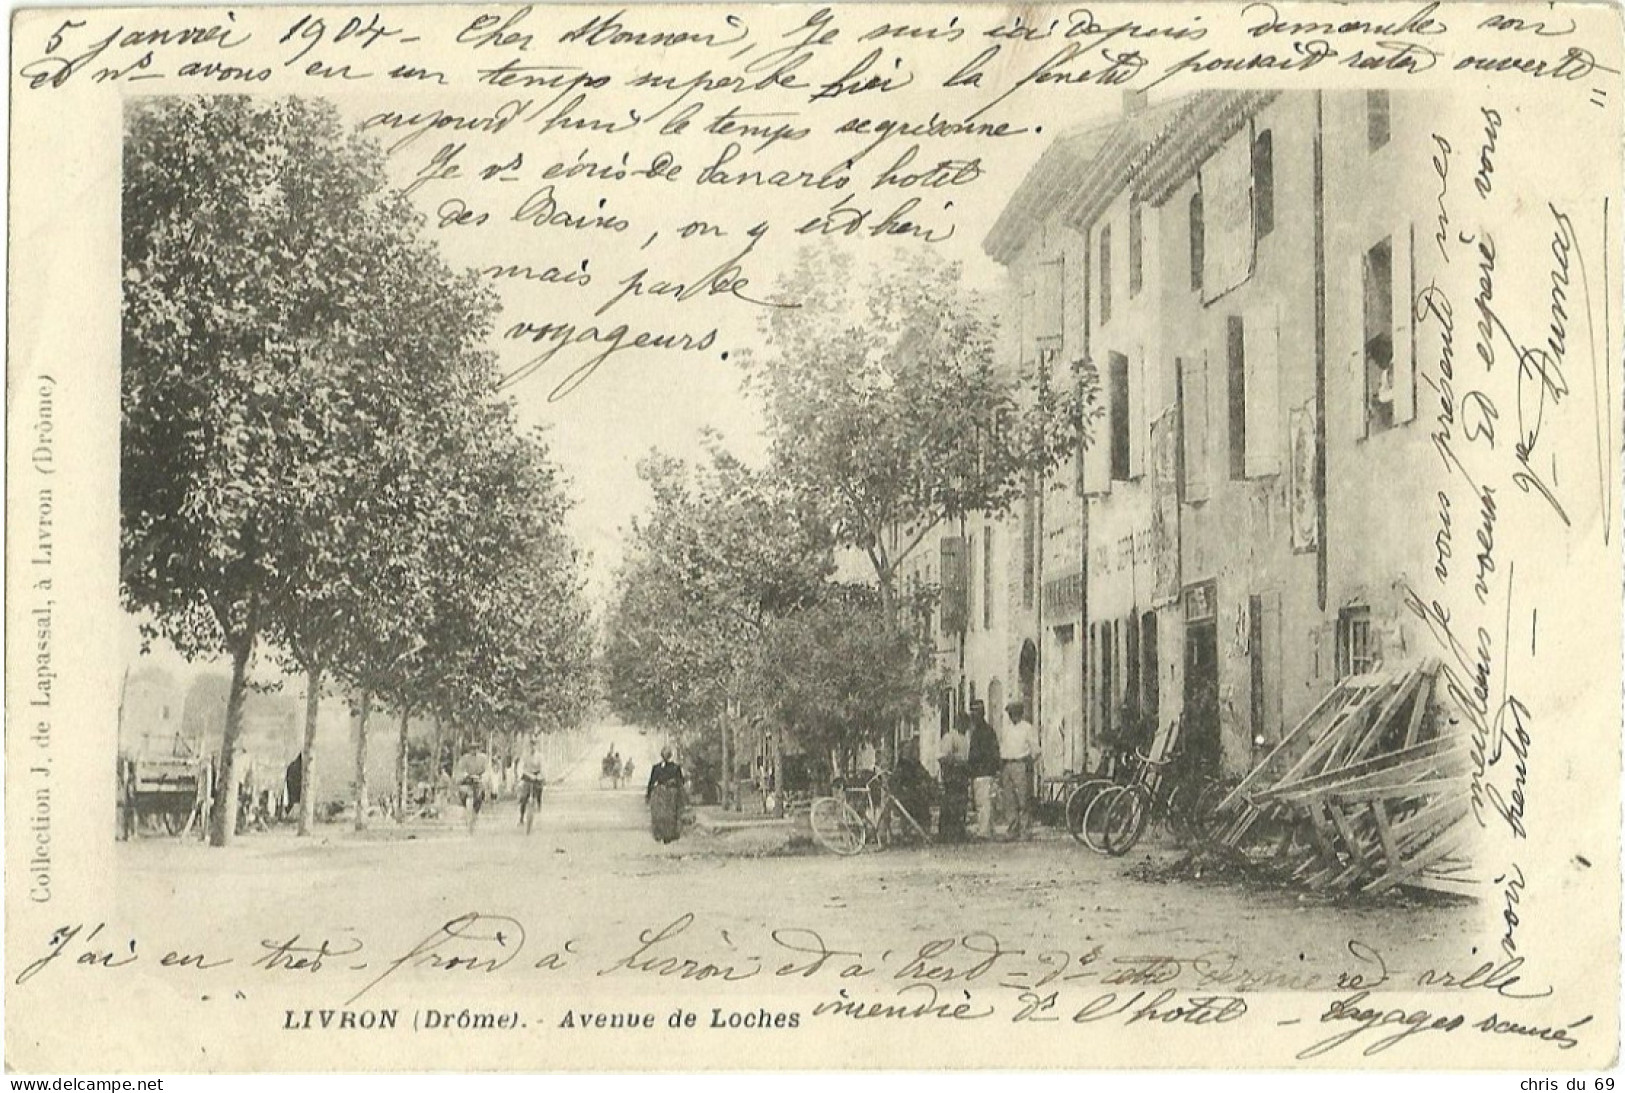 5 janvier 1904 - Cher Monsieur, Je suis ici depuis dimanche soir
et ns avons eu un temps superbe hier la fenêtre pouvait rester ouverte
aujourd'hui le temps se grisonne.
Je vs écris de Sanario, hotel
des Bains, on y est bien
mais pas de
voyageurs.
Je vous présente mes
meilleurs voeux et espère vous
voir bientôt -
Dumas
Collection J. de Lapassal, à Livron (Drôme)
J'ai eu très froid à Livron et à Crest - ds cette dernière ville
incendie ds l'hotel - bagages sauvés
LIVRON (Drôme). - Avenue de Loches
chris du 69